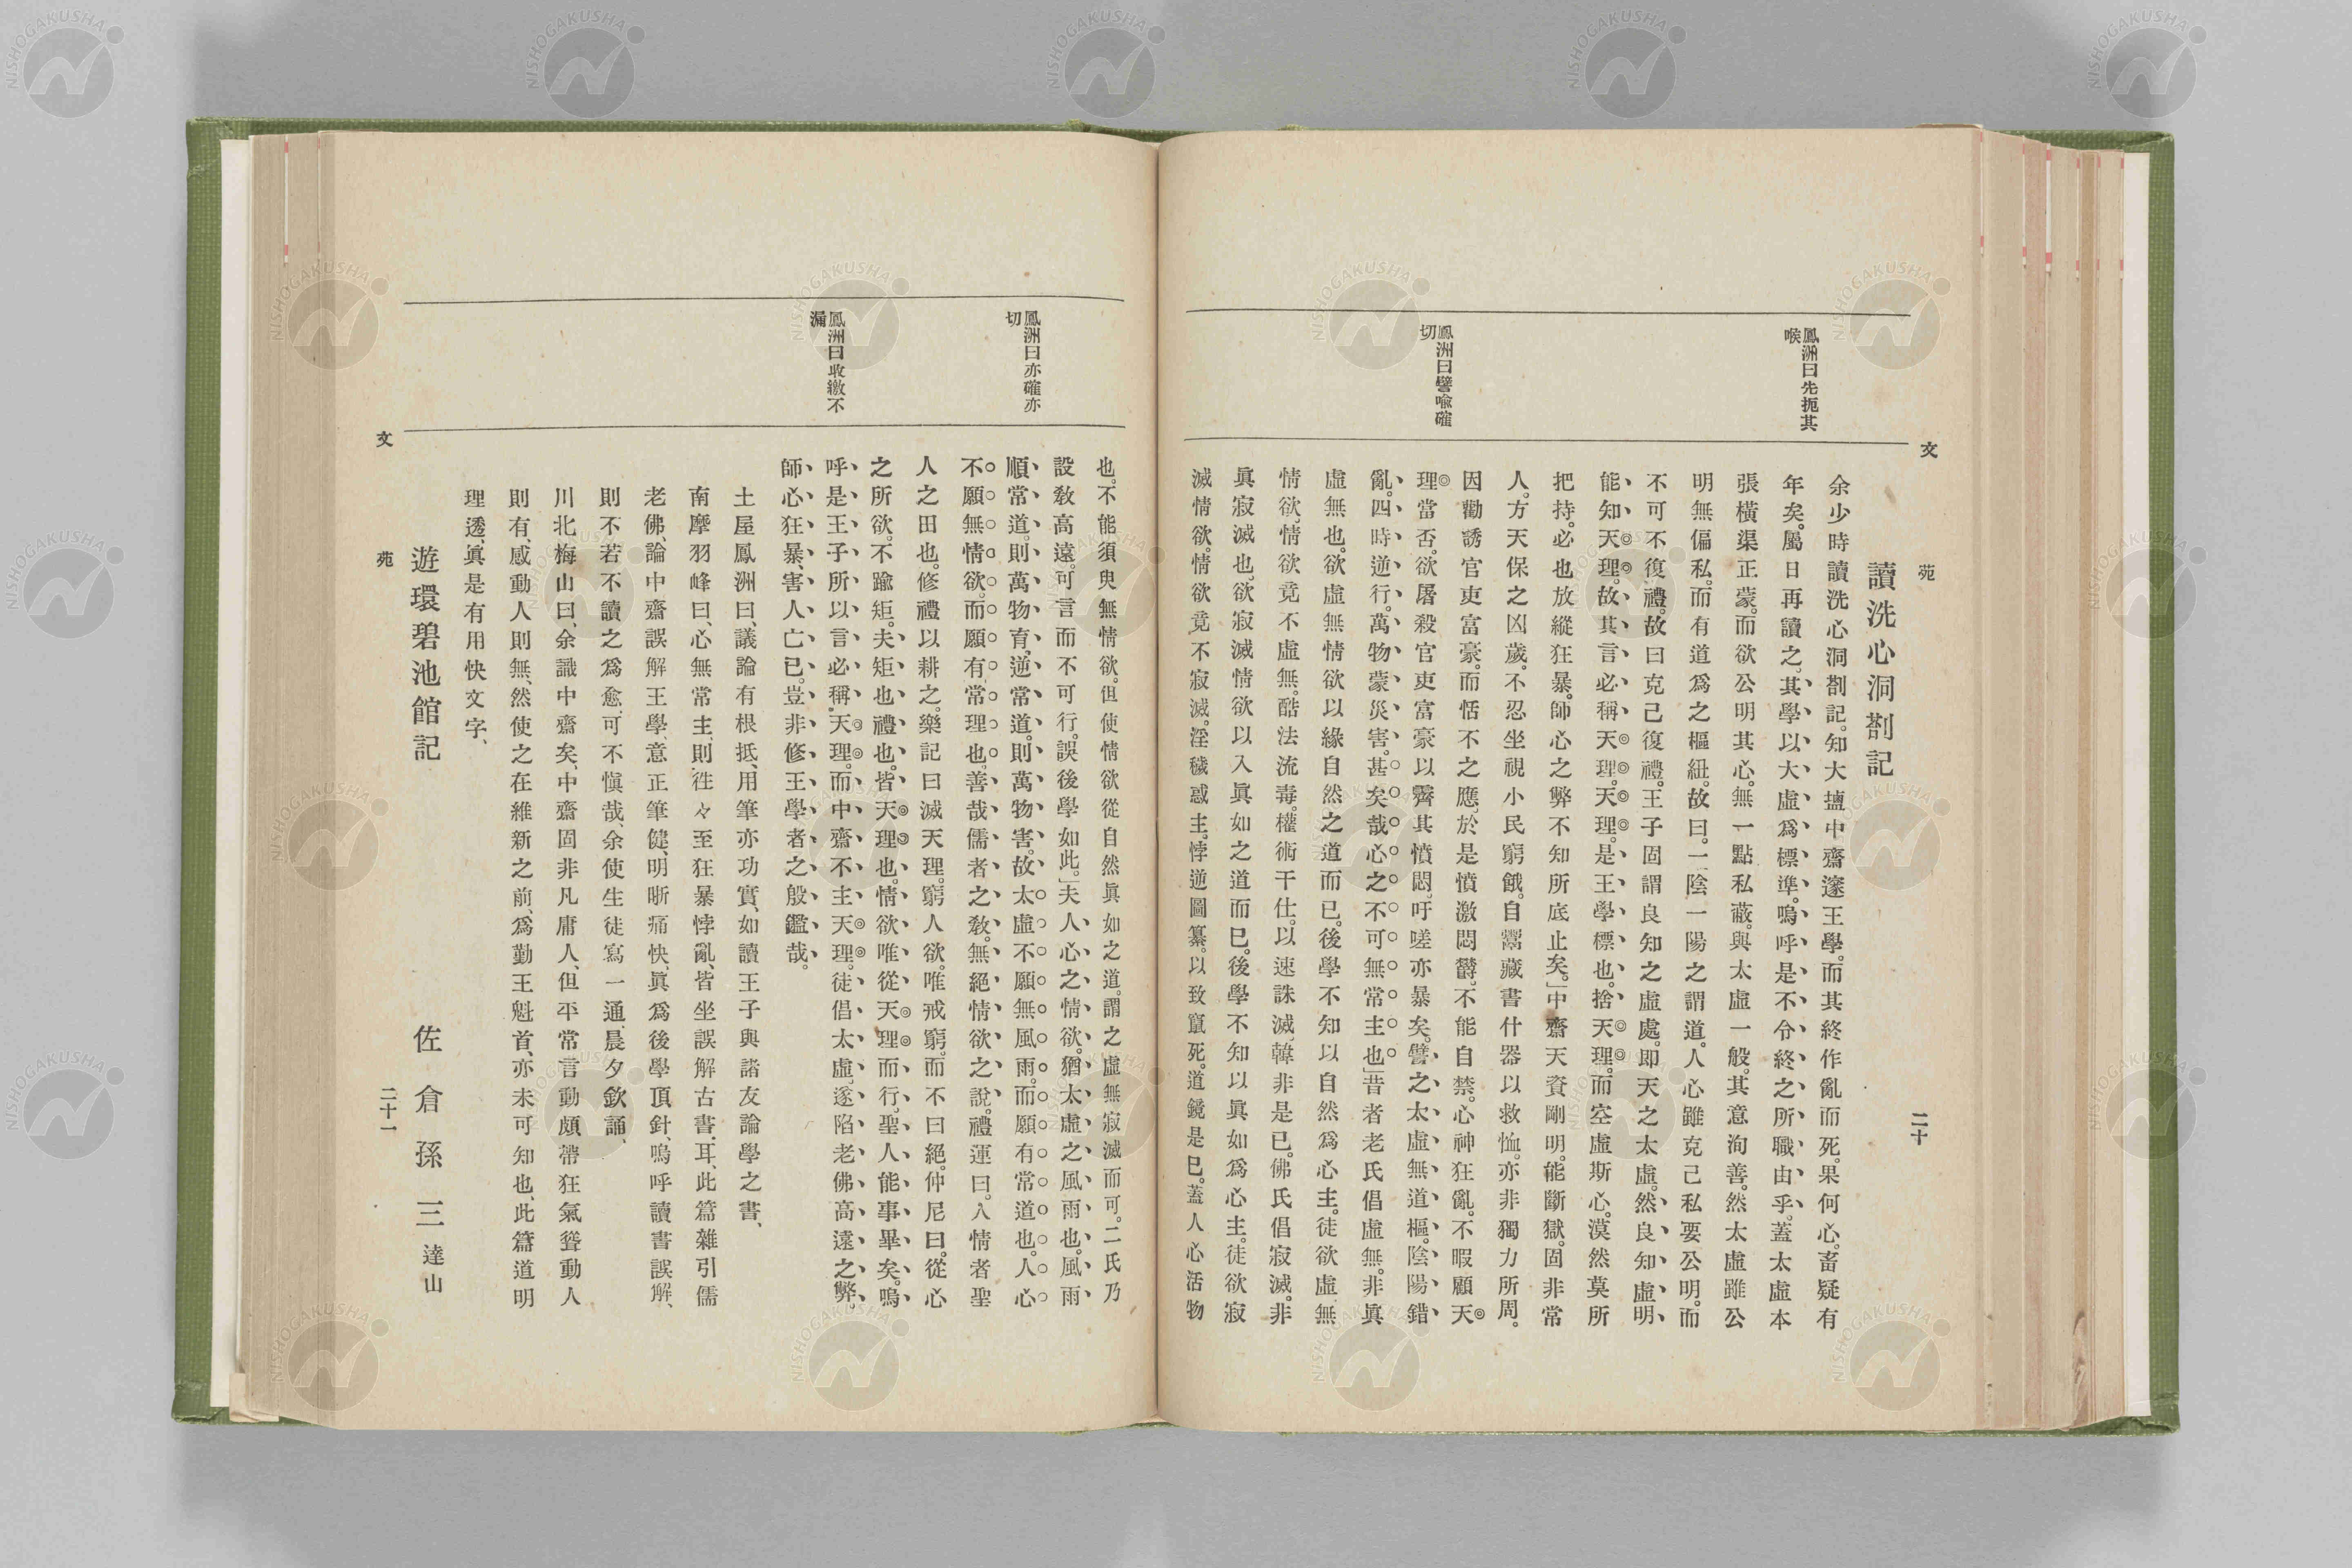 文
苑
二十
鳳洲曰先扼其
喉
鳳洲曰譬喩確
切
讀洗心洞劄記
余少時讀洗心洞劄記。知大塩中齋邃王學。而其終作亂而死。果何心。畜疑有
年矣。屬日再讀之、其學以大虛爲標準。嗚呼是不令終之所職由乎。蓋太虛本
張橫渠正蒙。而欲公明其心。無一點私蔽。與太虛一般。其意洵善。然太虛雖公
明無偏私。而有道爲之樞紐。故曰。一陰一陽之謂道。人心雖克己私要公明。而
不可不復禮。故曰克己復禮。王子固謂良知之虛處。即天之太虛。然良知虛明
能知天理。故其言必稱天理。天理。是王學標也。捨天理。而空虛斯心。漠然莫所
把持。必也放縱狂暴。師心之弊不知所底止矣。」中齋天資剛明。能斷獄。固非常
人。方天保之凶歲。不忍坐視小民窮餓。自鬻藏書什器以救恤。亦非獨力所周。
因勸誘官吏富豪。而恬不之應、於是憤激悶鬱。不能自禁。心神狂亂。不暇顧天
理當否。欲屠殺官吏富豪以霽其憤悶。吁嗟亦暴矣。譬之太虛無道樞。陰陽錯
亂。四時逆行。萬物蒙災害。甚矣哉心之不可無常主也」昔者老氏倡虛無。非眞
虛無也。欲虛無情欲以緣自然之道而已。後學不知以自然爲心主。徒欲虛無
情欲、情欲竟不虛無。酷法流毒。權術干仕。以速誅滅、韓非是已。佛氏倡寂滅。非
眞寂滅也。欲寂滅情欲以入眞如之道而已。後學不知以眞如爲心主。徒欲寂
滅情欲。情欲竟不寂滅。淫穢惑主。悖逆圖纂。以致竄死。道鏡是已。蓋人心活物
鳳洲曰亦確亦
切
鳳洲曰收繳不
漏
也。不能須臾無情欲。但使情欲從自然眞如之道。謂之虛無寂滅而可。二氏乃
設敎高遠。可言而不可行。誤後學如此。」夫人心之情欲。猶太虛之風雨也。風雨
順常道。則萬物育、逆常道。則萬物害。故太虛不願無風雨。而願有常道也。人心
不願無情欲。而願有常理也。善哉儒者之敎。無絕情欲之說。禮運曰。人情者聖
人之田也。修禮以耕之。樂記曰滅天理。窮人欲。唯戒窮。而不曰絕。仲尼曰。從心
之所欲。不踰矩。夫矩也禮也。皆天理也。情欲唯從天理而行、聖人能事畢矣。嗚
呼是王子所以言必稱天理。而中齋不主天理。徒倡太虛、遂陷老佛高遠之弊。
師心狂暴、害人亡已。豈非修王學者之殷鑑哉。
土屋鳳洲曰、議論有根抵、用筆亦功實、如讀王子與諸友論學之書、
南摩羽峰曰、心無常主、則往々至狂暴悖亂、皆坐誤解古書、耳、此篇雜引儒
老佛、論中齋誤解王學、意正筆健、明晰痛快、眞爲後學頂針、嗚呼讀書誤解、
則不若不讀之爲愈、可不愼哉、余使生徒寫一通、晨夕欽誦、
川北梅山曰、余識中齋矣、中齋固非凡庸人、但平常言動頗帶狂氣聳動人
則有、感動人則無、然使之在維新之前、爲勤王魁首、亦未可知也、此篇道明
理透、眞是有用快文字、
遊環碧池館記
佐倉孫三達山
文
苑
二十一